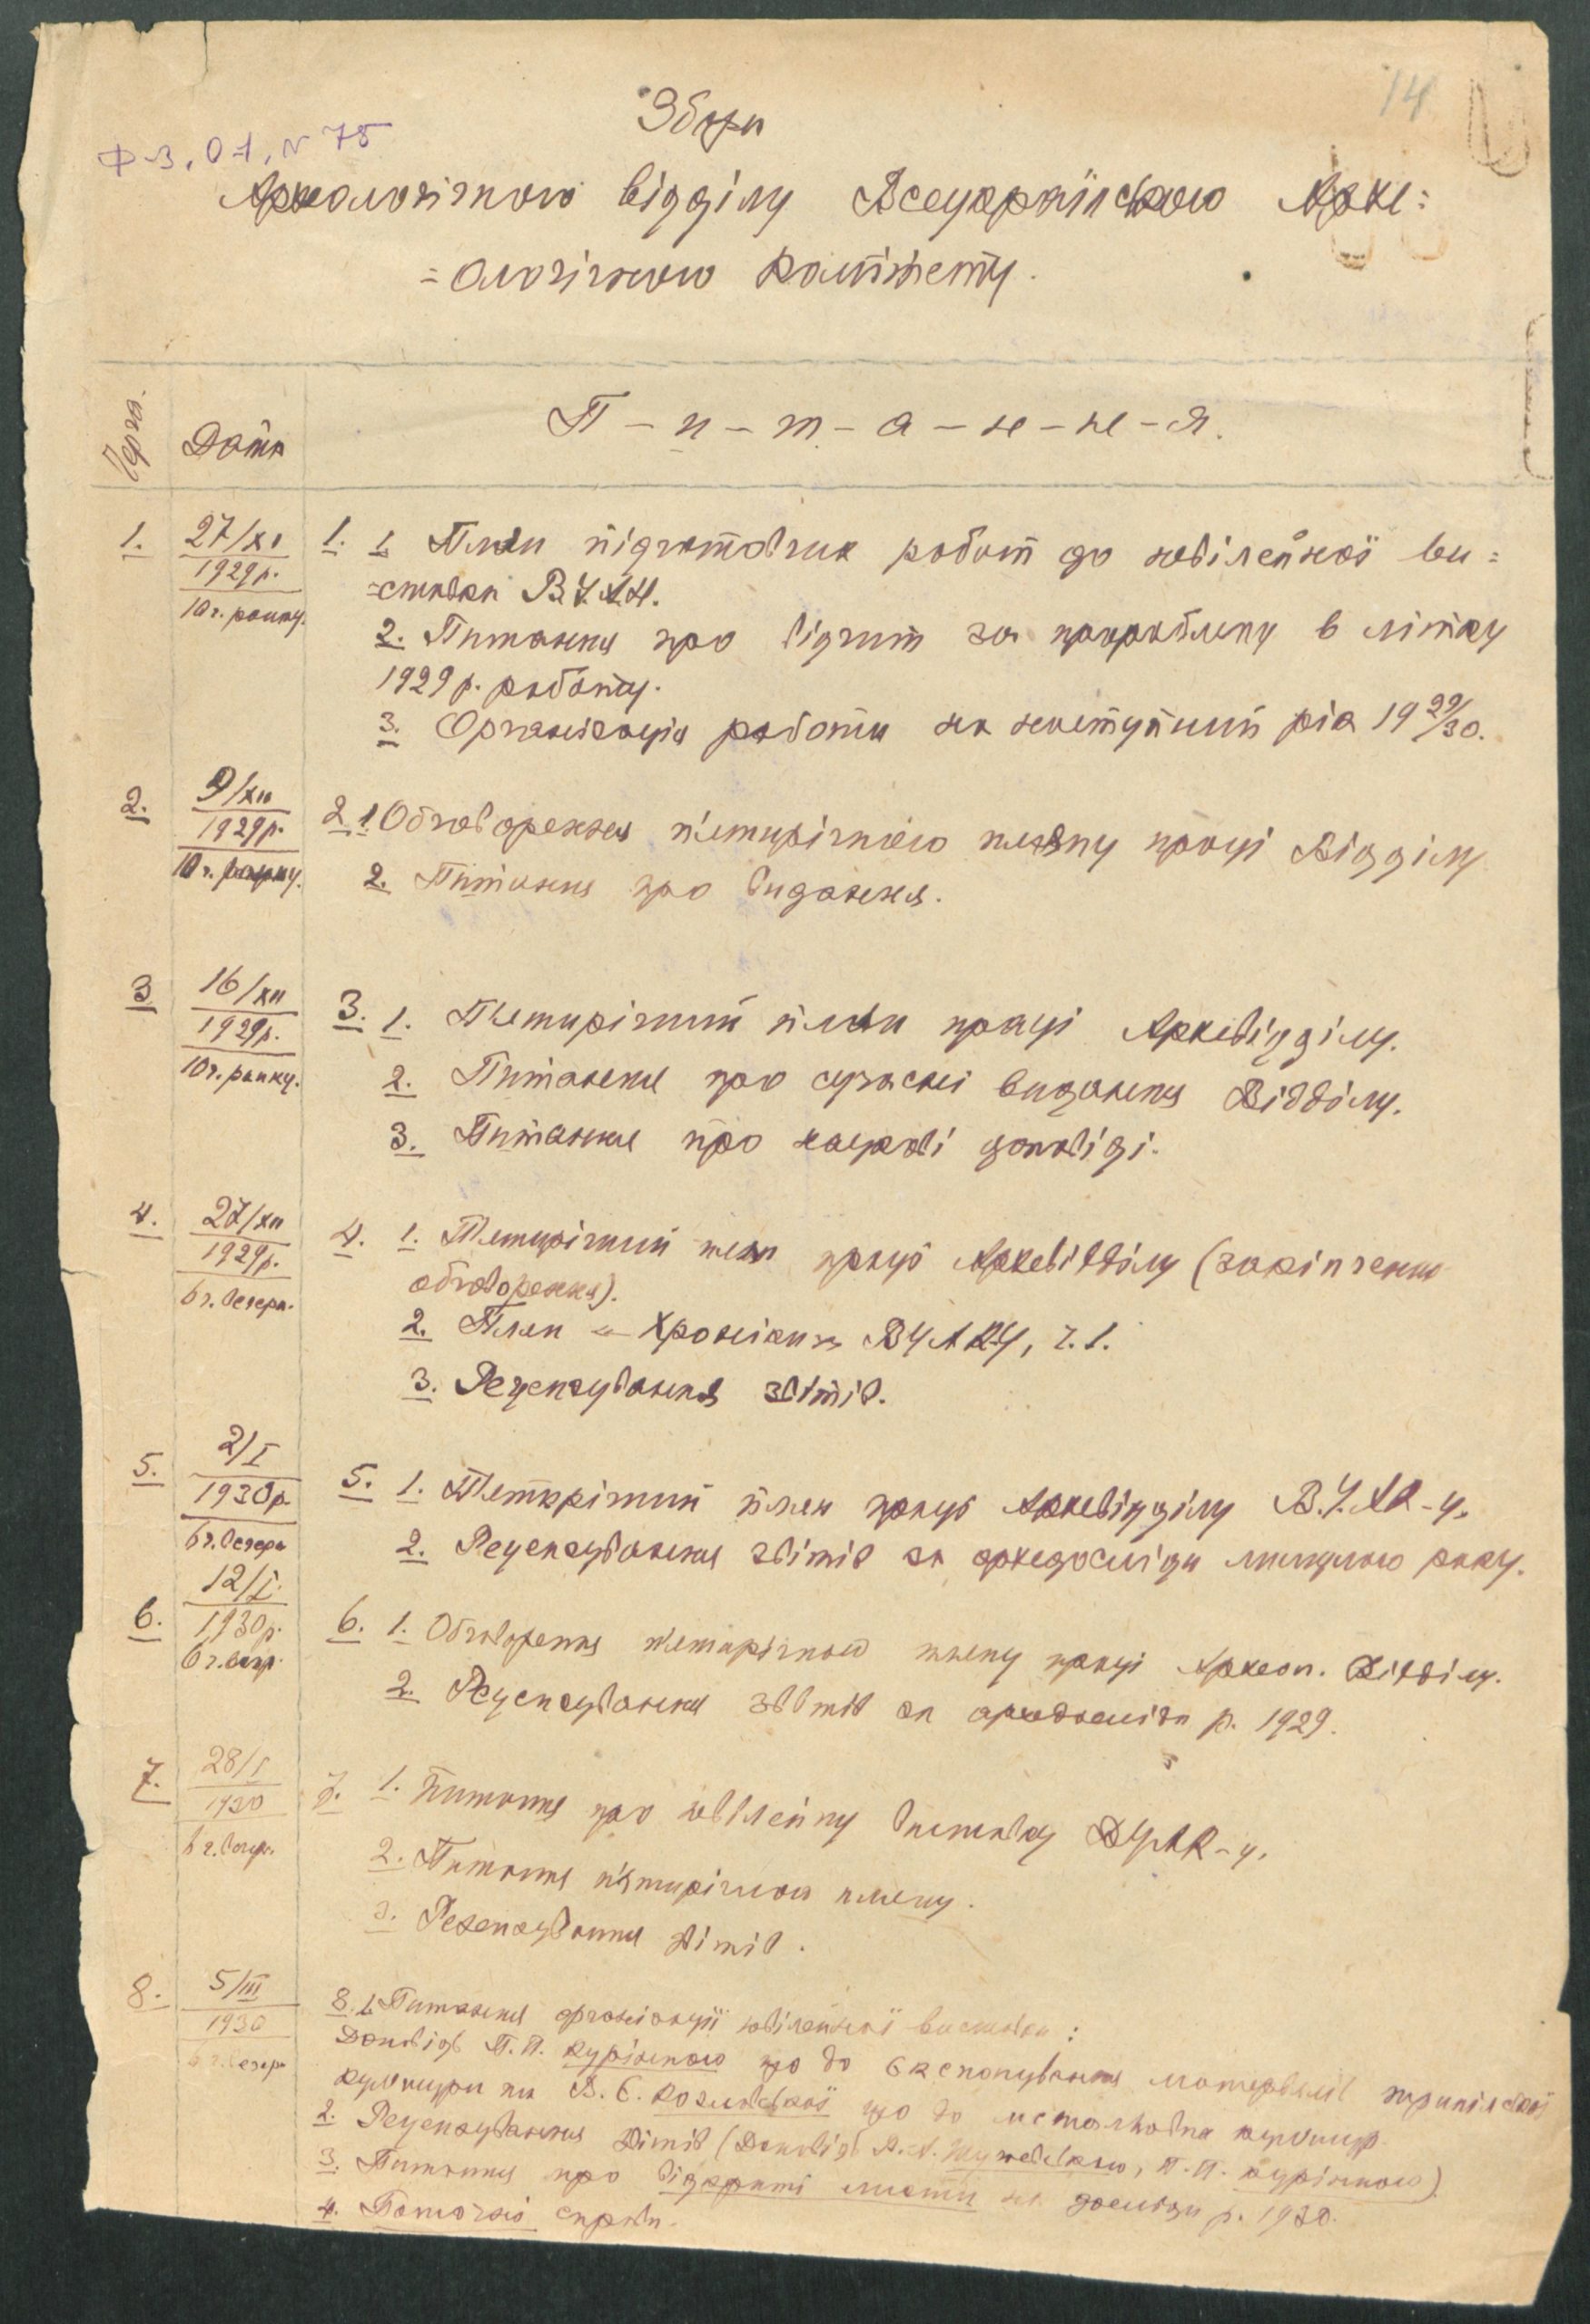 14
Ф-3, О-1, № 75
Збори
Археологічного відділу Всеукраїнського Архе=
=ологічного Комітету.
Черга. Дата П-и-т-а-н-н-я.
1. 27/XI 1929р. 10 г. ранку.
1. 1. План підготовчих робот до ювілейної ви=
=ставки ВУАН.
2. Питання про відчит за пророблену в літку
1929 р. роботу.
3. Організація роботи на наступний рік 19 29/30.
2. 9/XII 1929р. 10 г. ранку.
2 1. Обговорення п'ятирічного пляну праці Відділу
2. Питання про видання.
3 16/XII 1929р. 10 г. ранку.
3. 1. П'ятирічний плян праці Археовідділу.
2. Питання про сучасні видання Відділу.
3. Питання про наукові доповіді.
4. 27/XII 1929р. 6 г. вечера.
4. 1. П'ятирічний плян праці Археовідділу (закінчення
обговорення).
2. Плян „Хроніки" ВУАКу, ч. 1.
3. Рецензування звітів.
5. 2/I 1930р. 6 г. вечера
5. 1. П'ятирічний плян праці Археовідділу В.У.АК-у.
2. Рецензування звітів за археодосліди минулого року.
6. 12/I. 1930р. 6 г. вечр.
6. 1. Обговорення п'ятирічного пляну праці Археол. Відділу.
2. Рецензування звітів за археодосліди р. 1929.
7. 28/I 1930 6 г. вечр.
7. 1. Питання про ювілейну виставку ВУАК-у.
2. Питання п'ятирічного пляну.
3. Рецензування звітів.
8. 5/III 1930 6 г. вечера
8. 1. Питання організації ювілейної виставки:
Доповідь П.П. Курінного що до експонування матеріялів трипільської
культури та В.Є. Козловської що до неталькової культур.
2. Рецензування звітів (Доповідь П.П. Курінного)
3. Питання про відкриті листи на досліди р. 1930.
4. Поточні справи.